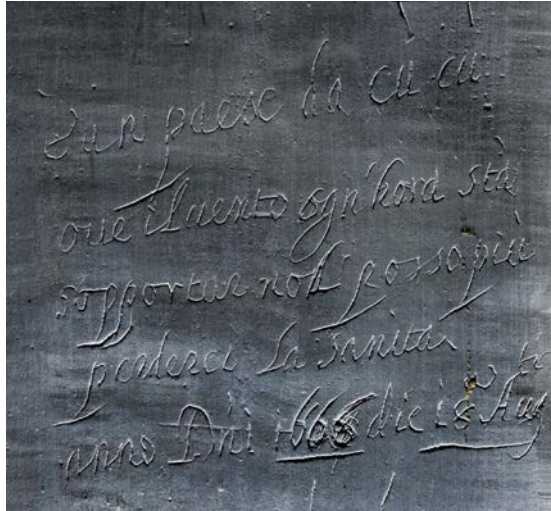 È un paese da cù cù
oue il uento ogn'hora stà
sopportar non possa più
perderci la sanita
anno Dni 1666 die 18 Aug